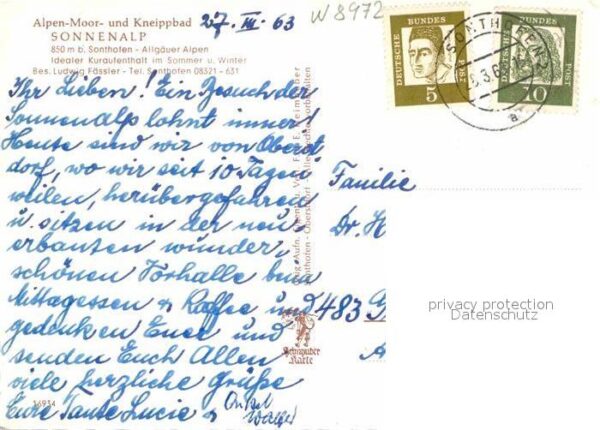 Alpen-Moor- und Kneippbad
SONNENALP
850 m b. Sonthofen - Allgäuer Alpen
Idealer Kuraufenthalt im Sommer u. Winter
Bes. Ludwig Fässler - Tel. Sonthofen 08321 - 631
27. III. 63
W 8972
DEUTSCHE BUNDESPOST
5
DEUTSCHE BUNDESPOST
10
SONTHOFEN 2
a
Ihr Lieben! Ein Besuch der
Sonnenalp lohnt immer!
Heute sind wir von Oberst
dorf, wo wir seit 10 Tagen
weilen, herübergefahren
u. sitzen in der neu
erbauten wunder,
schönen Vorhalle beim
Mittagessen u Kaffee und
gedenken Euer und
senden Euch Allen
viele herzliche Grüße
Eure Tante Lucie u Onkel
Familie
Dr. H
483 G
privacy protection
Datenschutz
Karte
16934